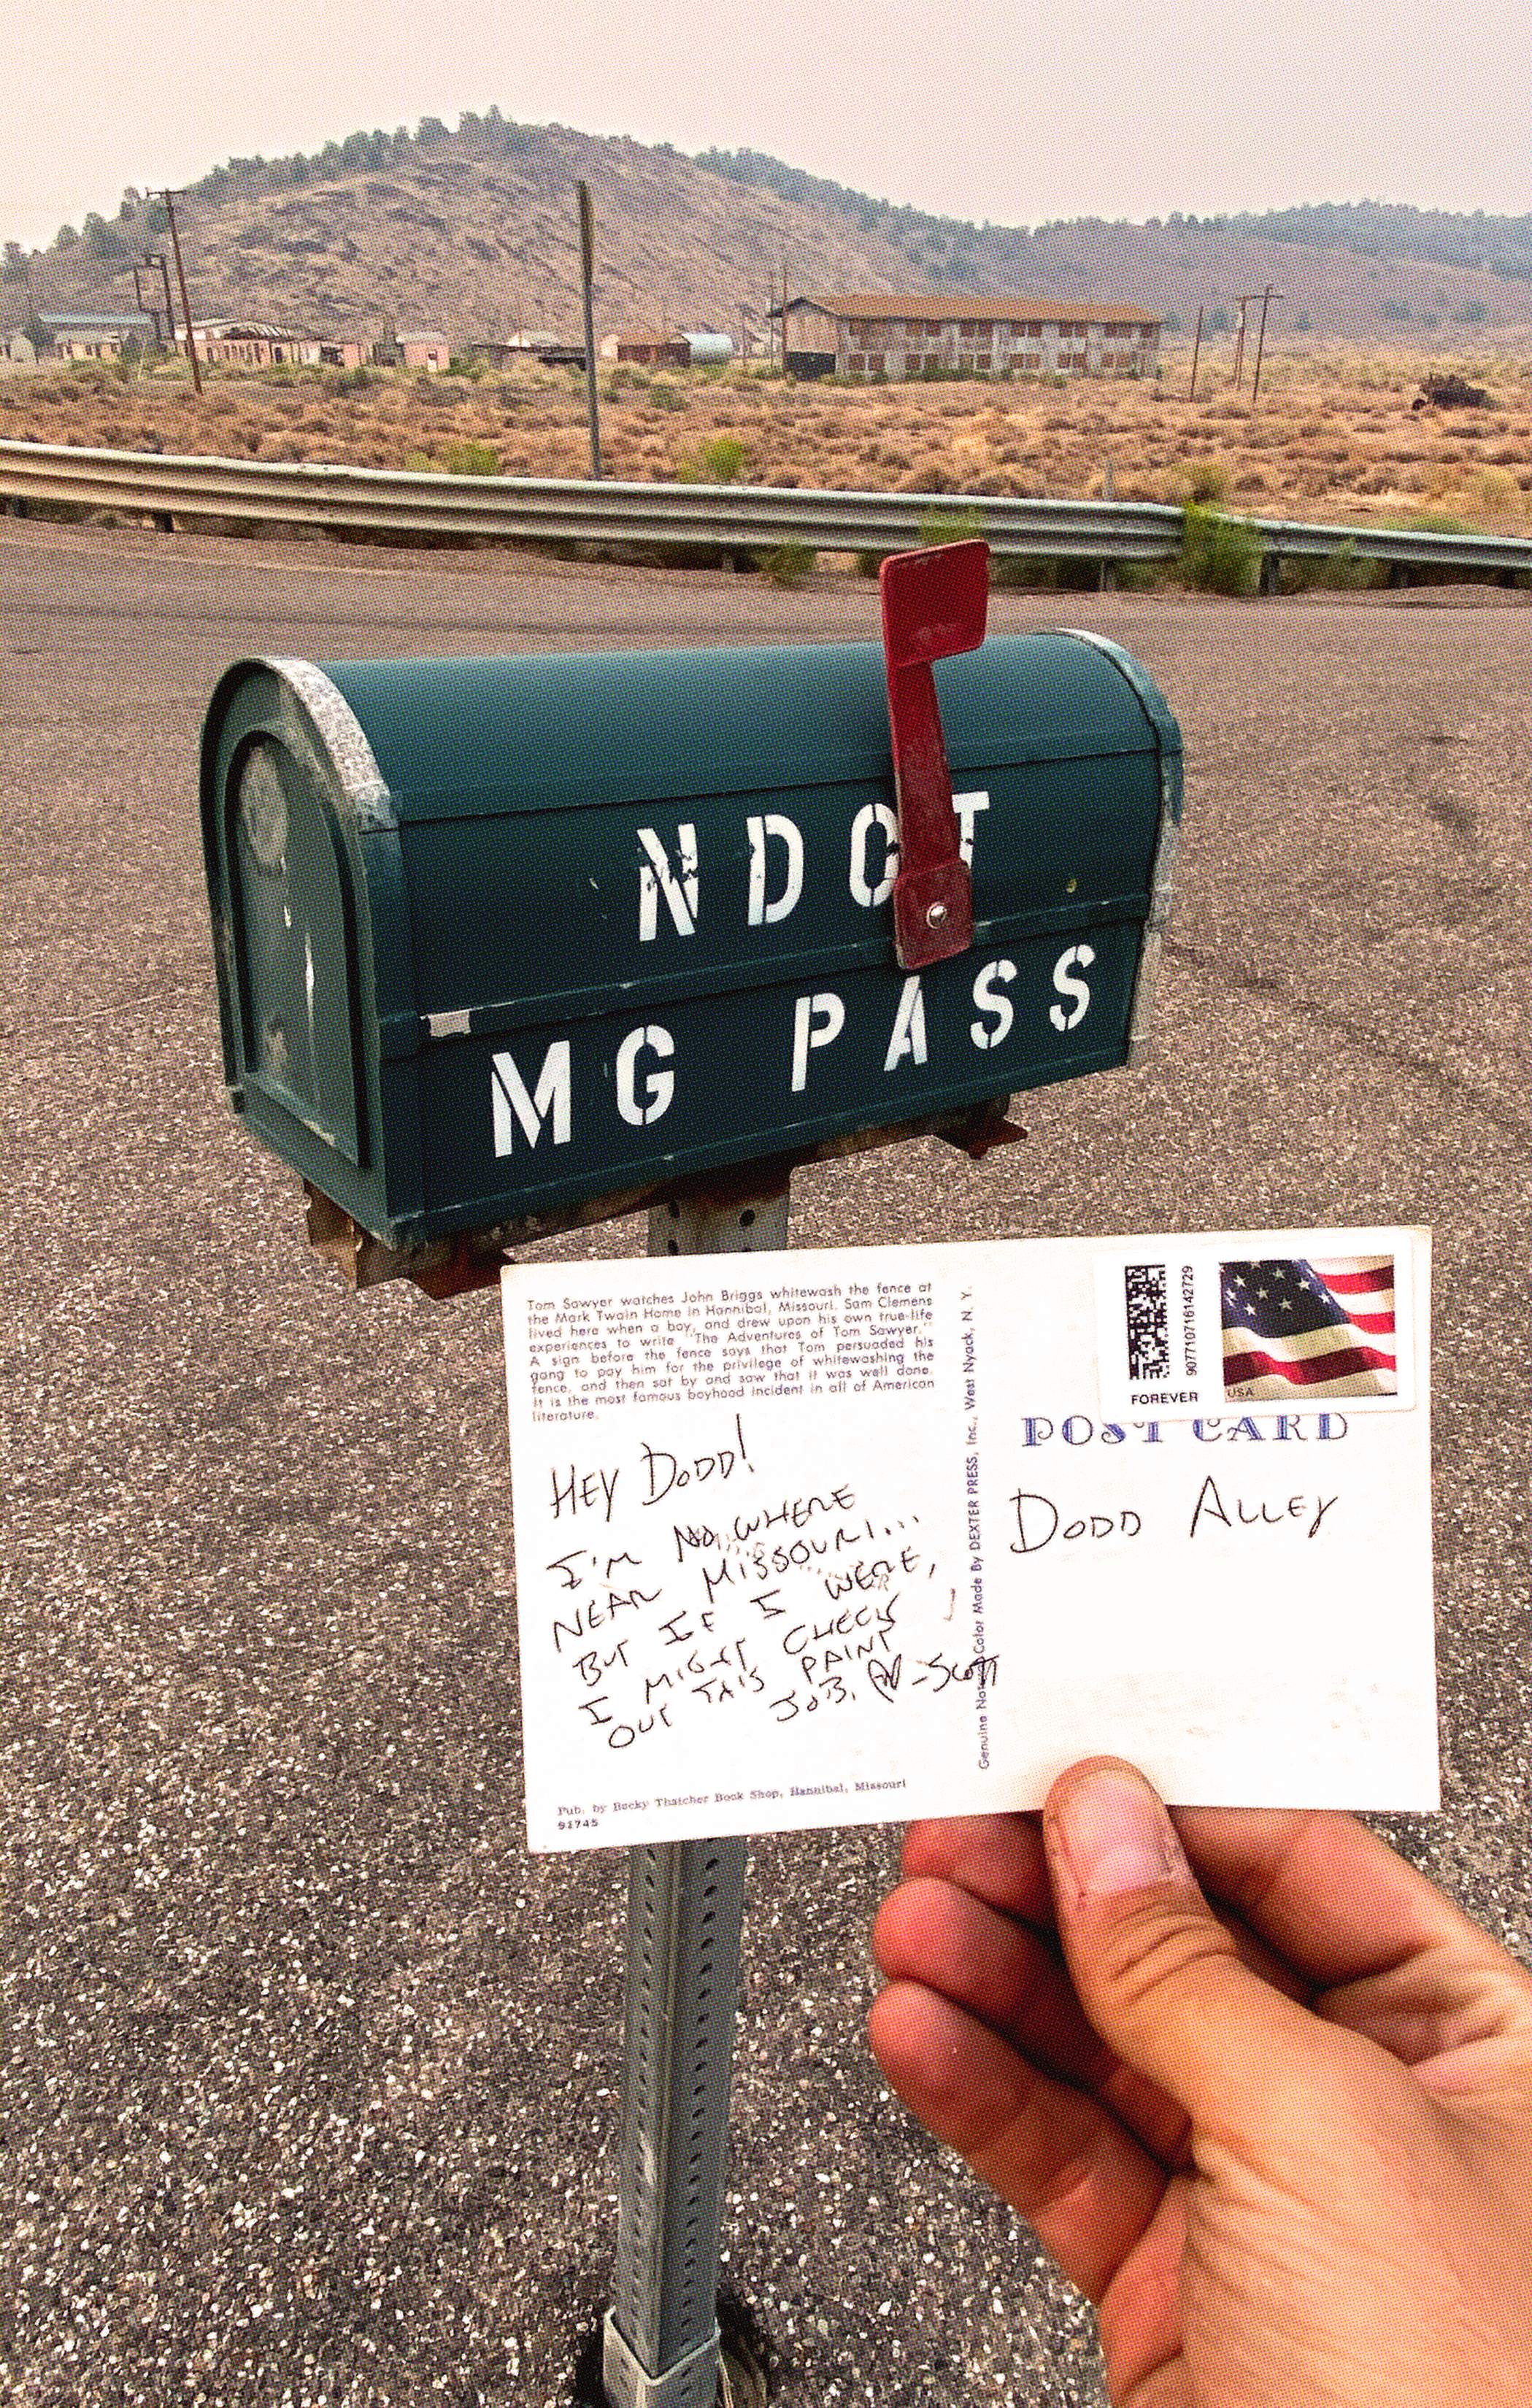 NDOT
MG PASS
Tom Sawyer watches John Briggs whitewash the fence at
the Mark Twain Home in Hannibal, Missouri. Sam Clemens
lived here when a boy, and drew upon his own true-life
experiences to write "The Adventures of Tom Sawyer."
A sign before the fence says that Tom persuaded his
gang to pay him for the privilege of whitewashing the
fence, and then sat by and saw that it was well done.
It is the most famous boyhood incident in all of American
literature.
HEY DODD!
I'M NOWHERE
NEAR MISSOURI...
BUT IF I WERE,
I MIGHT CHECK
OUT THIS PAINT
JOB. -SCOTT
Pub. by Becky Thatcher Book Shop, Hannibal, Missouri
Genuine Natural Color Made By DEXTER PRESS, Inc., West Nyack, N. Y.
9077107161142729
FOREVER
USA
POST CARD
DODD ALLEY